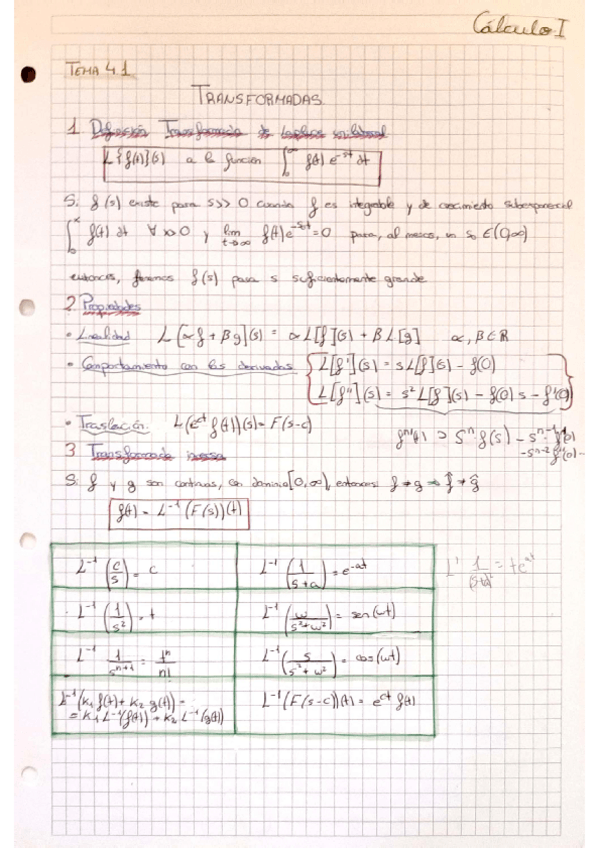 Cálculo I
TEMA 4.1
TRANSFORMADAS
1. Definición Transformada de Laplace unilateral
L{f(t)}(s) a la función ∫₀^∞ f(t) e^{-st} dt
Si f(s) existe para s>> 0 cuando f es integrable y de crecimiento subexponencial
∫₀^x f(t) dt ∀ x>0 y lim_{t→∞} f(t)e^{-s₀t}=0 para, al menos, un s₀ ∈(0,∞)
entonces, f(s) para s suficientemente grande
2. Propiedades
• Linealidad L[αf + βg](s) = αL[f](s) + βL[g] α, β∈R
• Comportamiento con las derivadas { L[f'](s) = sL[f](s) - f(0)
L[f''](s) = s²L[f](s) - f(0) s - f'(0) }
• Traslación: L(e^{ct} f(t))(s) = F(s-c)
fⁿ(t) ⊃ Sⁿ·f(s) - S^{n-1}·f(0)
-S^{n-2} f'(0)...
3. Transformada inversa
Si f y g son continuas, con dominio [0,∞], entonces: f ≠ g ⇒ f̂ ≠ ĝ
f(t) = L⁻¹(F(s))(t)
L⁻¹(c/s) = c L⁻¹(1/(s+a)) = e^{-at} L⁻¹ 1/(s+a)² = te^{at}
L⁻¹(1/s²) = t L⁻¹(w/(s²+w²)) = sen(wt)
L⁻¹ 1/s^{n+1} = tⁿ/n! L⁻¹(s/(s²+w²)) = cos(wt)
L⁻¹(K₁ f(t) + K₂ g(t)) = L⁻¹(F(s-c))(t) = e^{ct} f(t)
= K₁ L⁻¹(f(t)) + K₂ L⁻¹(g(t))